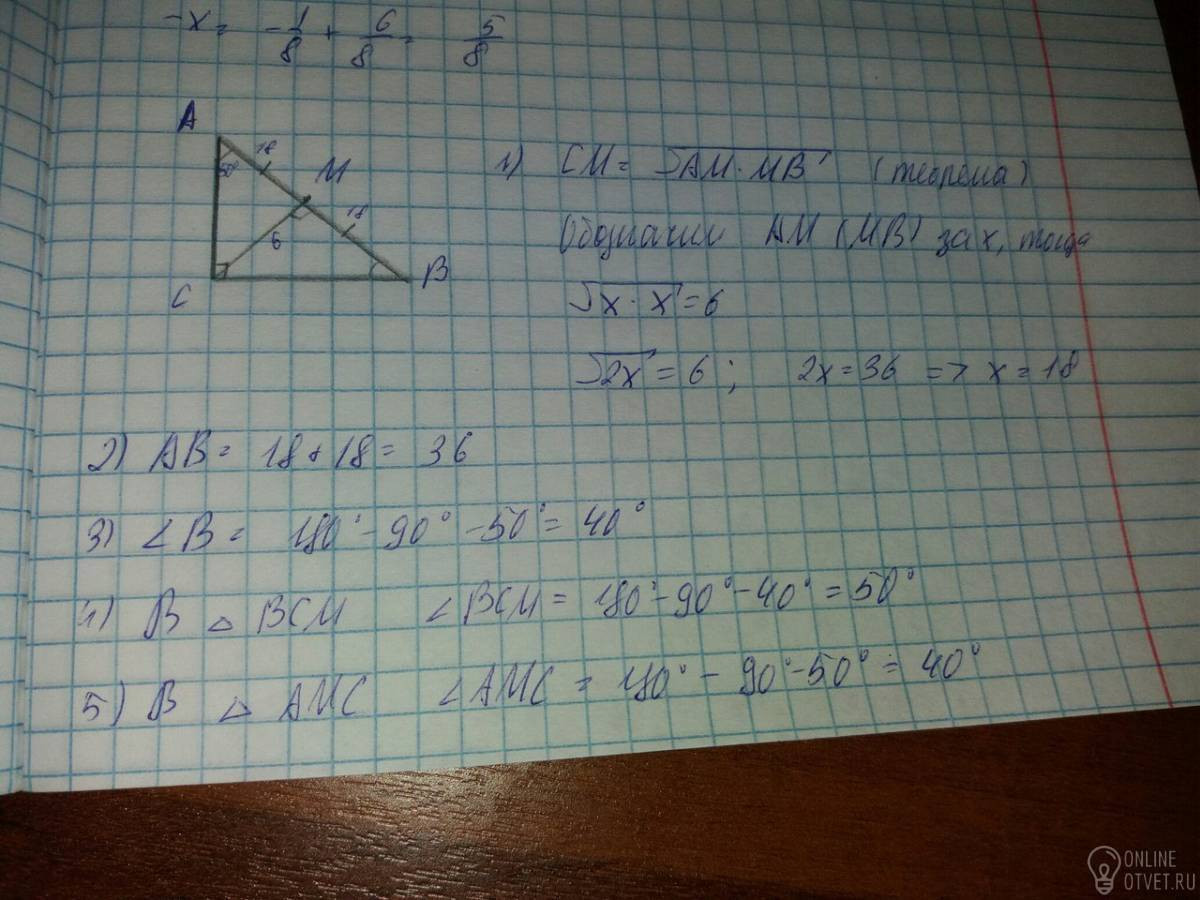 -x = -1/8 + 6/8 = 5/8
A
50°
18
M
18
6
C
B
1) CM = √AM·MB (теорема)
Обозначим AM (MB) за x, тогда
√x·x = 6
√2x = 6; 2x = 36 => x = 18
2) AB = 18 + 18 = 36
3) ∠B = 180° - 90° - 50° = 40°
4) В △ BCM ∠BCM = 180° - 90° - 40° = 50°
5) В △ AMC ∠AMC = 180° - 90° - 50° = 40°
ONLINE
OTVET.RU